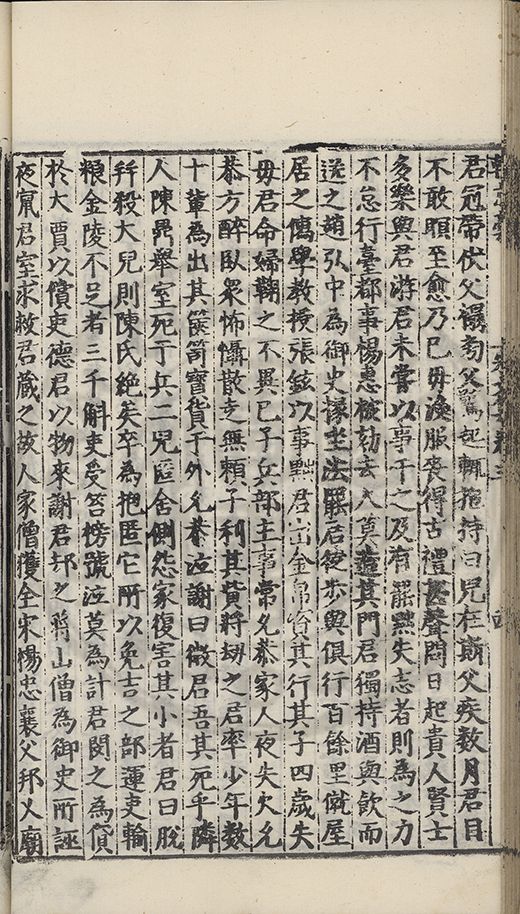 君冠帶伏父榻旁父驚起輒抱持曰兒在斯父疾數月君目
不敢瞑至愈乃已毋渙服喪得古禮甚聲問日起貴人賢士
多樂與君游君未嘗以事干之及有罷黜失志者則為之力
不怠行臺都事楊惠被劾去人莫造其門君獨持酒與飲而
送之趙弘中為御史掾坐法罷居徒步與俱行百餘里僦屋
居之儒學教授張鉉以事黜君出金帛資其行其子四歲失
毋君命婦鞠之不異已子兵部主事常允恭家人夜失火允
恭方醉臥眾怖懾散走無賴子利其貲將劫之君率少年數
十輩為出其篋笥寶貨于外允恭泣謝曰微君吾其死乎隣
人陳昺舉室死于兵二兒匿舍側怨家復害其小者君曰脫
并殺大兒則陳氏絕矣卒為抱匿它所以免吉之部運吏輸
粮金陵不足者三千斛吏受笞榜號泣莫為計君閔之為貸
於大賈以償吏德君以物來謝君却之蔣山僧為御史所誣
夜竄君室求救君蔵之故人家僧獲全宋楊忠襄父邦乂廟